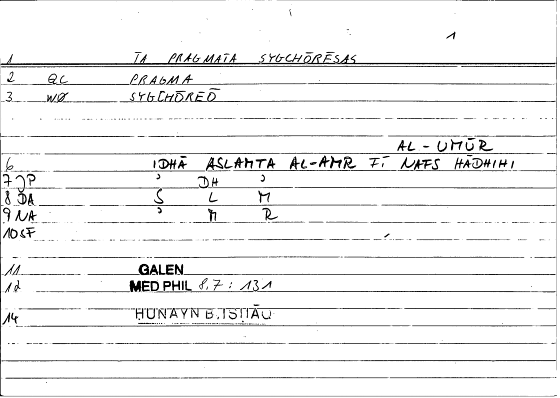 1
1 TA PRAGMATA SYGCHŌRĒSAS
2 QC PRAGMA
3 WØ SYGCHŌREŌ
AL-UMŪR
6 IDHĀ ASLAMTA AL-AMR FĪ NAFS HĀDHIHI
7 JP ʾ DH ʾ
8 DA S L M
9 NA ʾ M R
10 SF
11 GALEN
12 MED PHIL 8,7 : 131
14 HUNAYN B. ISḤĀQ